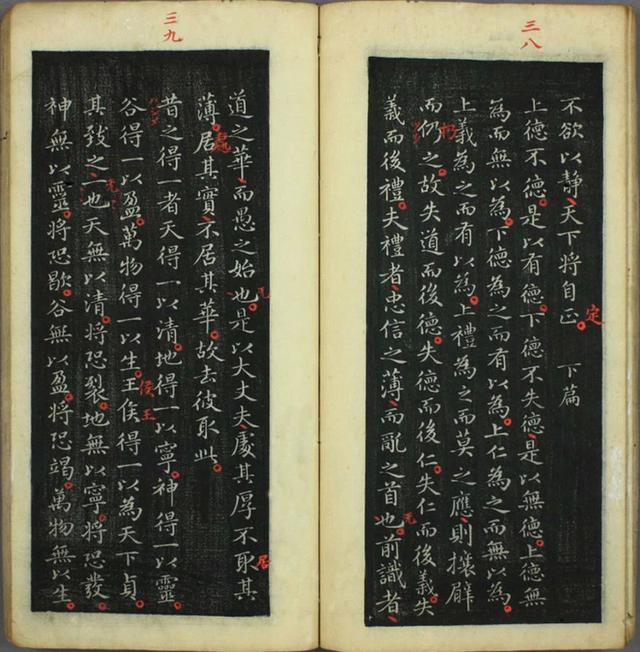 三八
不欲以靜天下將自正 下篇
定
上德不德是以有德下德不失德是以無德上德無
為而無以為下德為之而有以為上仁為之而無以為
上義為之而有以為上禮為之而莫之應則攘臂
扔
而仍之故失道而後德失德而後仁失仁而後義失
義而後禮夫禮者忠信之薄而亂之首也前識者
无
三九
道之華而愚之始也是以大丈夫處其厚不取其
无
居
薄居其實不居其華故去彼取此
處
昔之得一者天得一以清地得一以寧神得一以靈
谷得一以盈萬物得一以生王侯得一以為天下貞
侯王
其致之一也天無以清將恐裂地無以寧將恐發
无
神無以靈將恐歇谷無以盈將恐竭萬物無以生